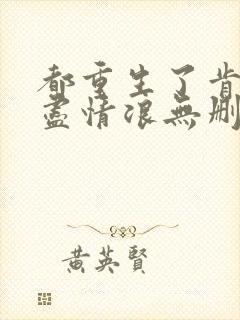 都重生了肯
盡情浪無刪
黃英賢